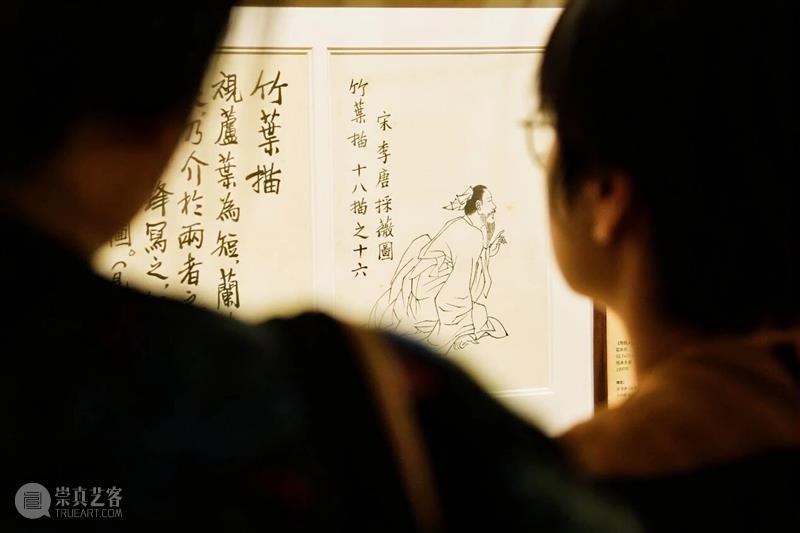 宋李唐採薇圖
竹葉描 十八描之十六
竹葉描
視蘆葉為短，蘭
乃介於兩者之
寫之，
圖。
崇真艺客
TRUEART.COM